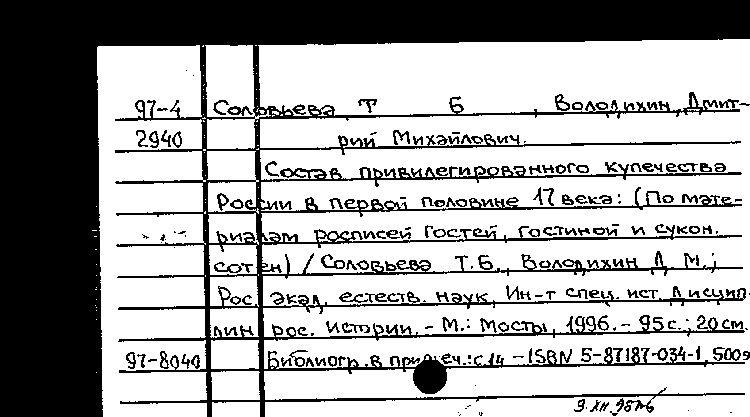 97-4 Соловьева Т Б , Володихин, Дмит-
2940 рий Михайлович.
Состав привилегированного купечества
России в первой половине 17 века: (По мате-
риалам росписей гостей, гостиной и сукон.
сотен) / Соловьева Т.Б., Володихин Д. М.;
Рос. акад. естеств. наук, Ин-т спец. ист. дисцип-
лин рос. истории. - М.: Мосты, 1996. - 95 с.; 20 см.
97-8040 Библиогр. в примеч.: с.14 - ISBN 5-87187-034-1, 500э
9 XII